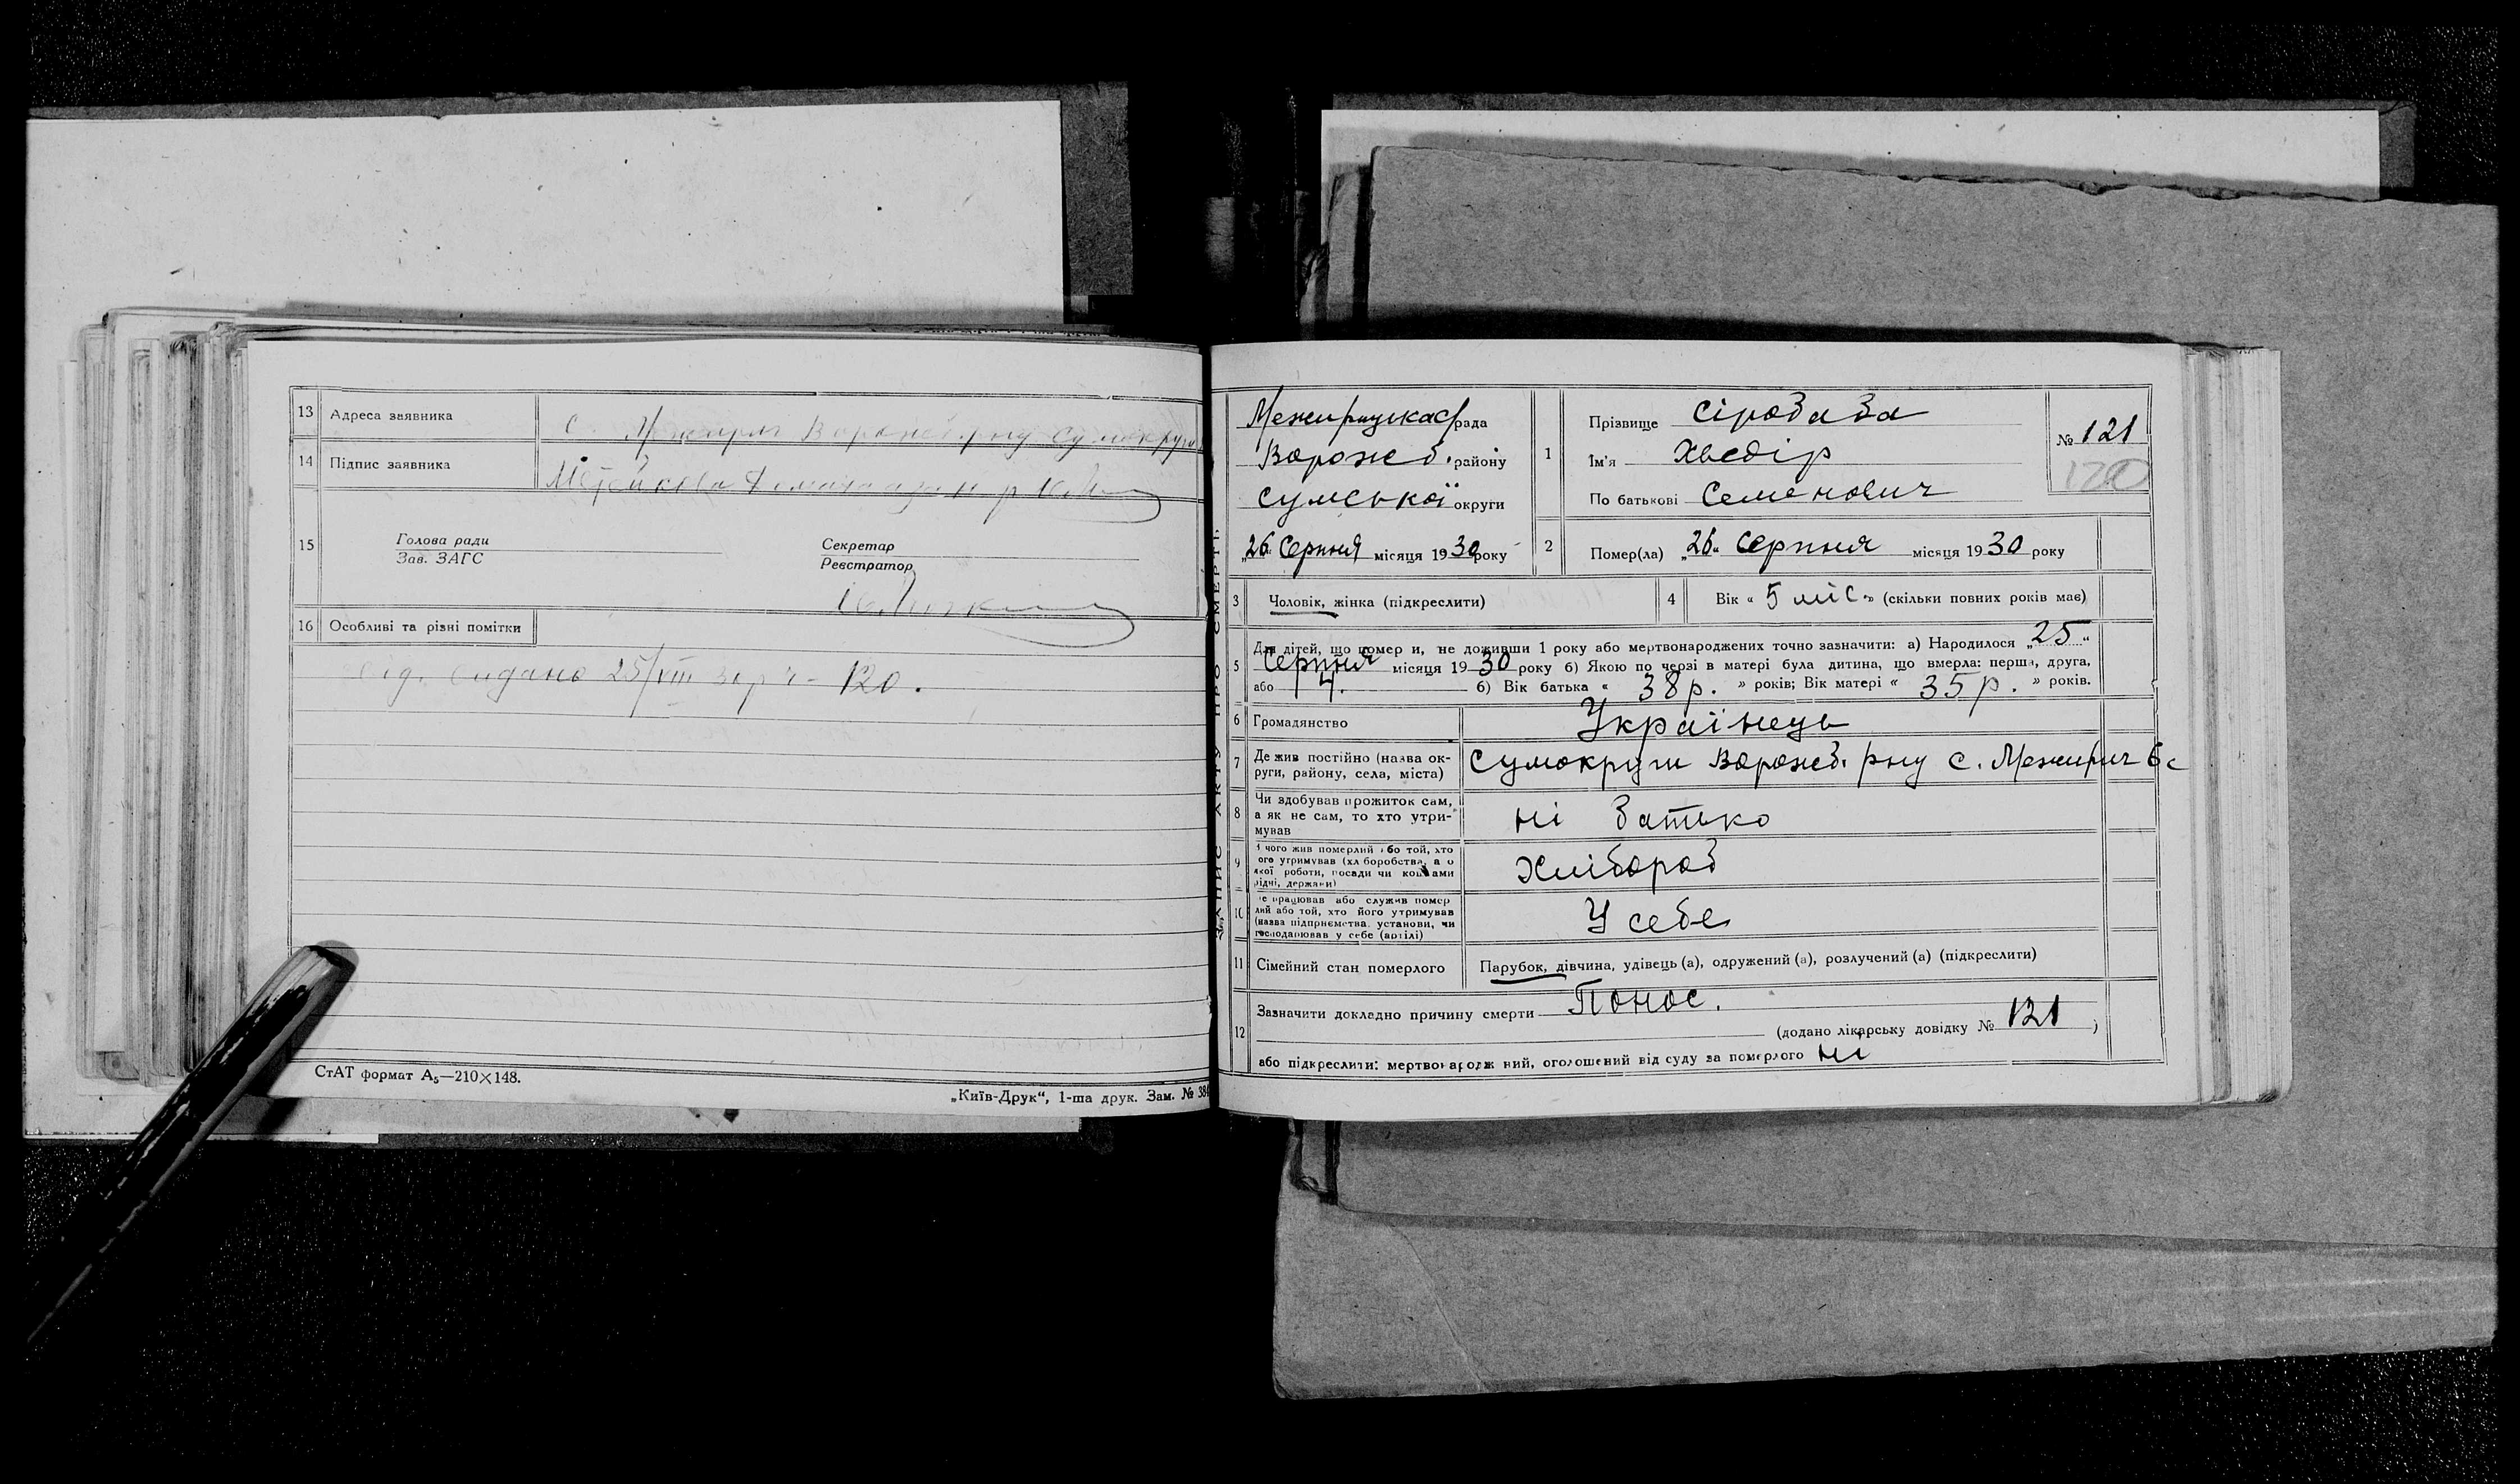 13 Адреса заявника с. Межирич Ворожб. рну Сумокруги
14 Підпис заявника
15 Голова ради Секретар
Зав. ЗАГС Реєстратор
16 Особливі та різні помітки
видано 25/VIII 30 р 120.
СтАТ формат А5—210×148.
„Київ-Друк“, 1-ша друк. Зам. № 38
ЗАПИС АКТУ ПРО СМЕРТЬ
Межирицька с/рада
Ворожб. району
Сумської округи
„26“ Серпня місяця 1930 року
1 Прізвище Сіробаба
Ім'я Хведір
По батькові Семенович
№ 121
120
2 Помер(ла) „26“ Серпня місяця 1930 року
3 Чоловік, жінка (підкреслити)
4 Вік « 5 міс. » (скільки повних років має)
5 Для дітей, що помер и, не доживши 1 року або мертвонароджених точно зазначити: а) Народилося „25“
Серпня місяця 1930 року б) Якою по черзі в матері була дитина, що вмерла: перша, друга,
або 4. б) Вік батька « 38 р. » років; Вік матері « 35 р. » років.
6 Громадянство Українець
7 Де жив постійно (назва ок-
руги, району, села, міста) Сумокруги Ворожб. рну с. Межирич
8 Чи здобував прожиток сам,
а як не сам, то хто утри-
мував ні батько
9 З чого жив померлий або той, хто
ого утримував (хл боробства, а о
якої роботи, посади чи коштами
рідні, держави) Хлібороб
10 е працював або служив помер
лий або той, хто його утримував
(назва підприємства, установи, чи
господарював у себе (артілі) У себе
11 Сімейний стан померлого Парубок, дівчина, удівець (а), одружений (а), розлучений (а) (підкреслити)
12 Зазначити докладно причину смерти Понос.
(додано лікарську довідку № 121 )
або підкреслити: мертвонародж ний, оголошений від суду за померлого ні